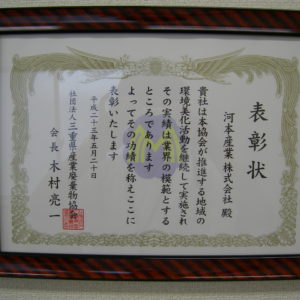 表彰状
河本産業 株式会社 殿
貴社は本協会が推進する地域の
環境美化活動を継続して実施され
その実績は業界の模範とする
ところであります
よってその功績を称えここに
表彰いたします
平成二十三年五月二十日
社団法人 三重県産業廃棄物協会
会長 木村亮一